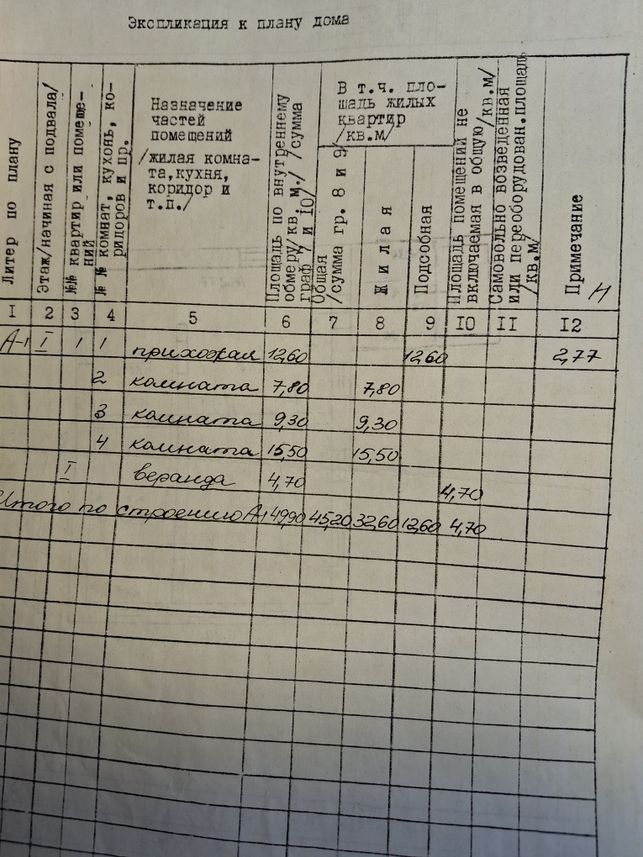 Экспликация к плану дома
Литер по плану
Этаж/начиная с подвала/
№№ квартир или помеще-
ний
№ № комнат, кухонь, ко-
ридоров и пр.
Назначение
частей
помещений
/жилая комна-
та,кухня,
коридор и
т.п./
Площадь по внутреннему
обмеру/кв м./ /сумма
граф 7 и 10/
В т.ч. пло-
щадь жилых
квартир
/кв.м/
Общая
/сумма гр. 8 и 9/
Жилая
Подсобная
Площадь помещений не
включаемая в общую/кв.м/
Самовольно возведенная
или переоборудован.площадь
/кв.м/
Примечание
H
I 2 3 4 5 6 7 8 9 IO II I2
А-1 I 1 1 прихожая 12,60 12,60 2,77
2 комната 7,80 7,80
3 комната 9,30 9,30
4 комната 15,50 15,50
I веранда 4,70 4,70
Итого по строению А1 49,90 45,20 32,60 12,60 4,70